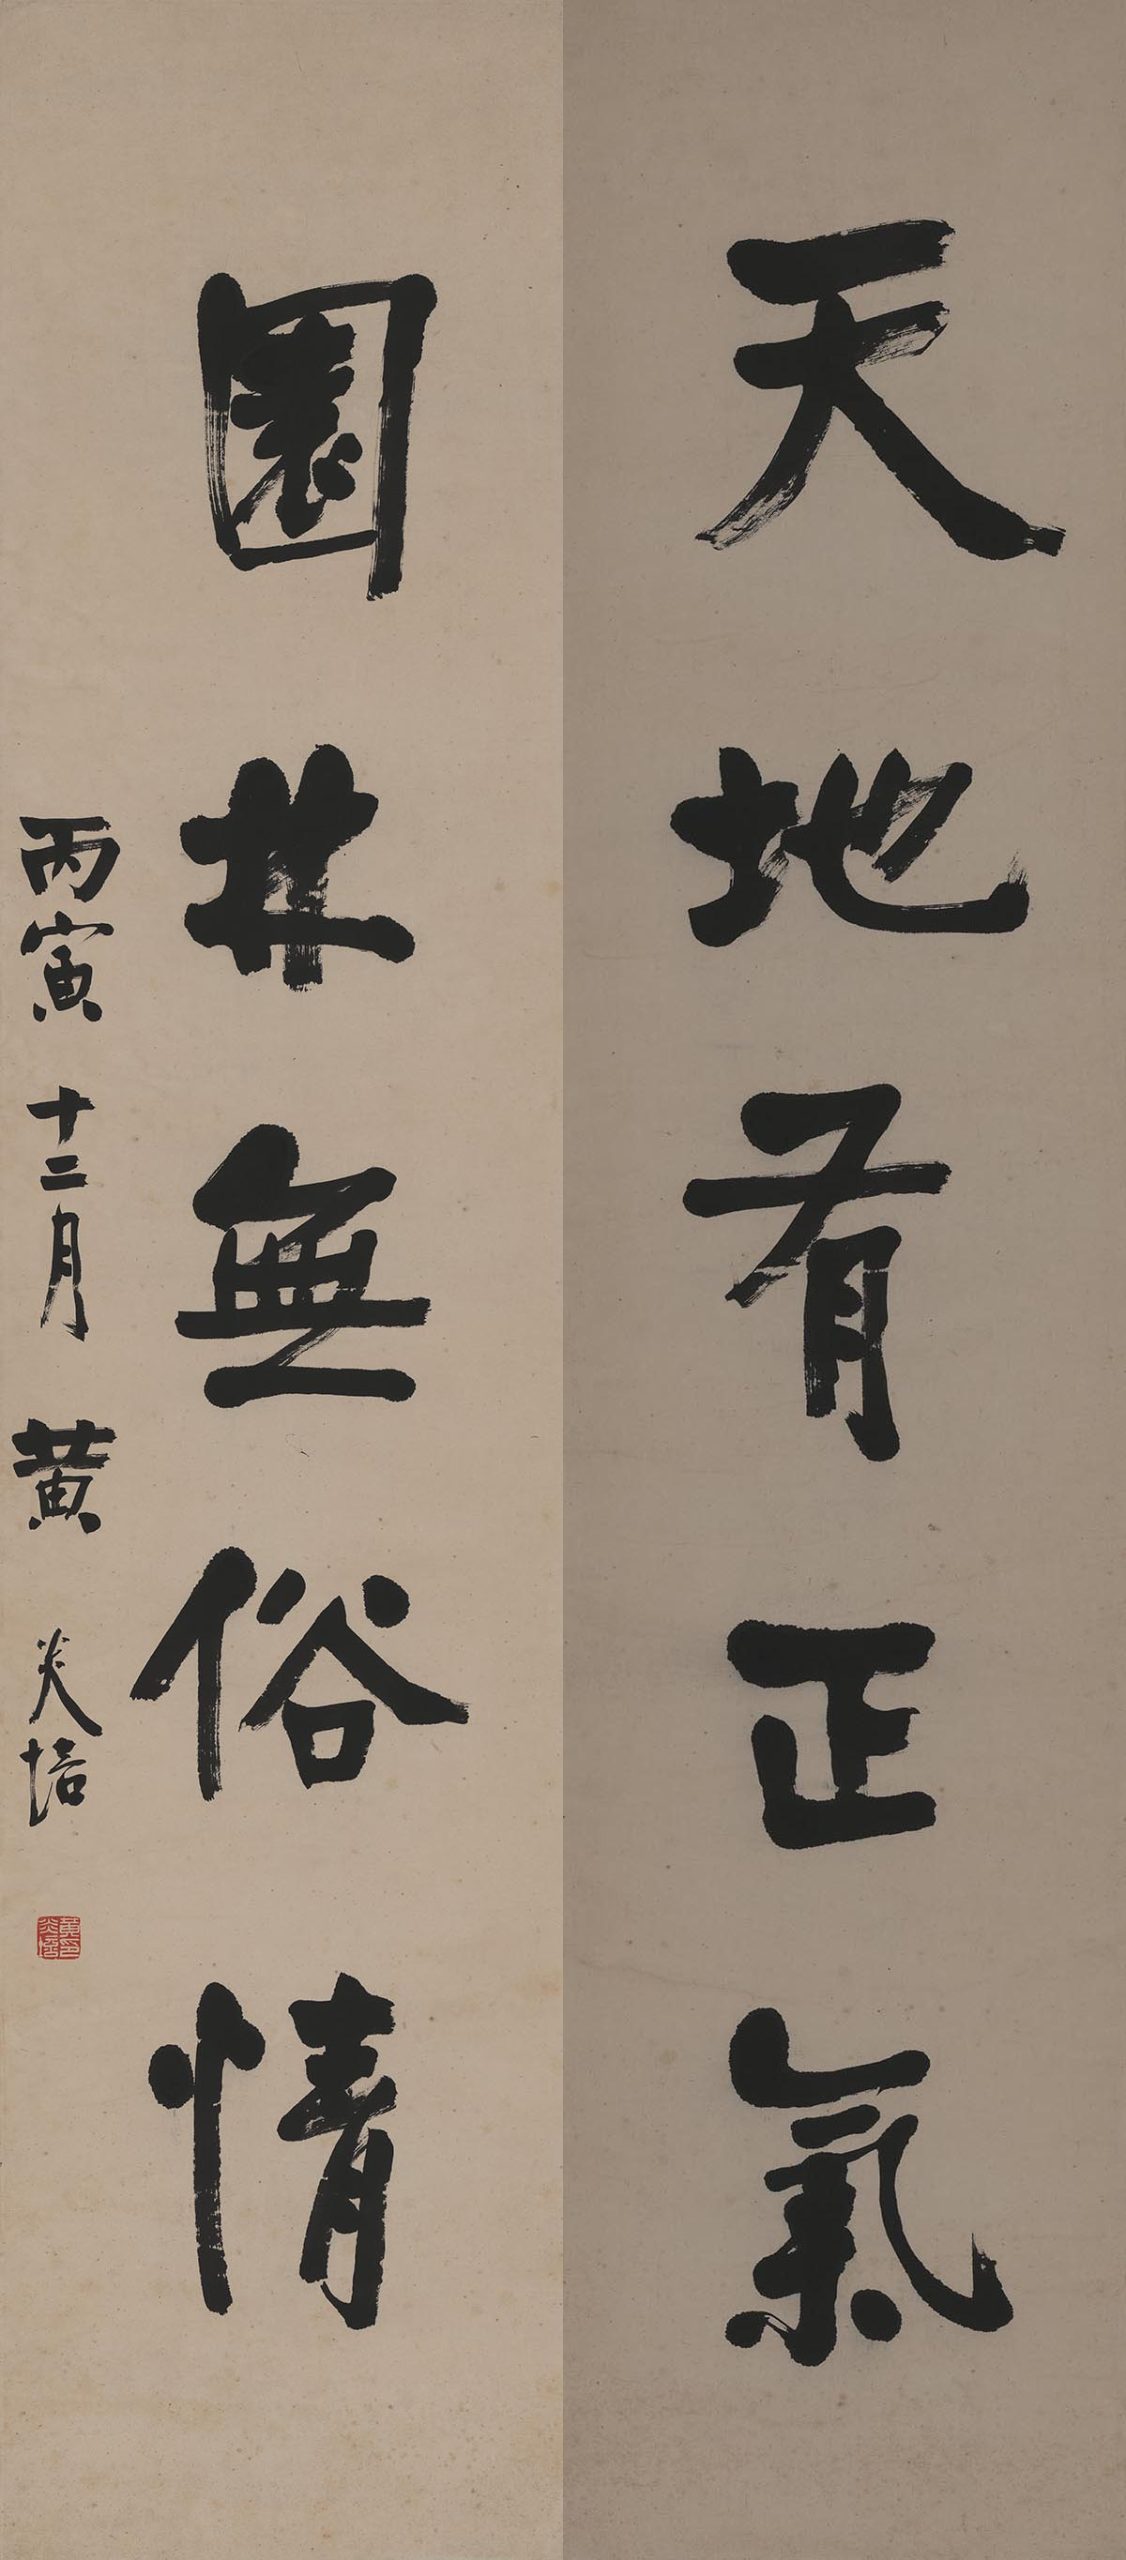 天地有正氣
園林無俗情
丙寅十二月 黃炎培
黃炎培印